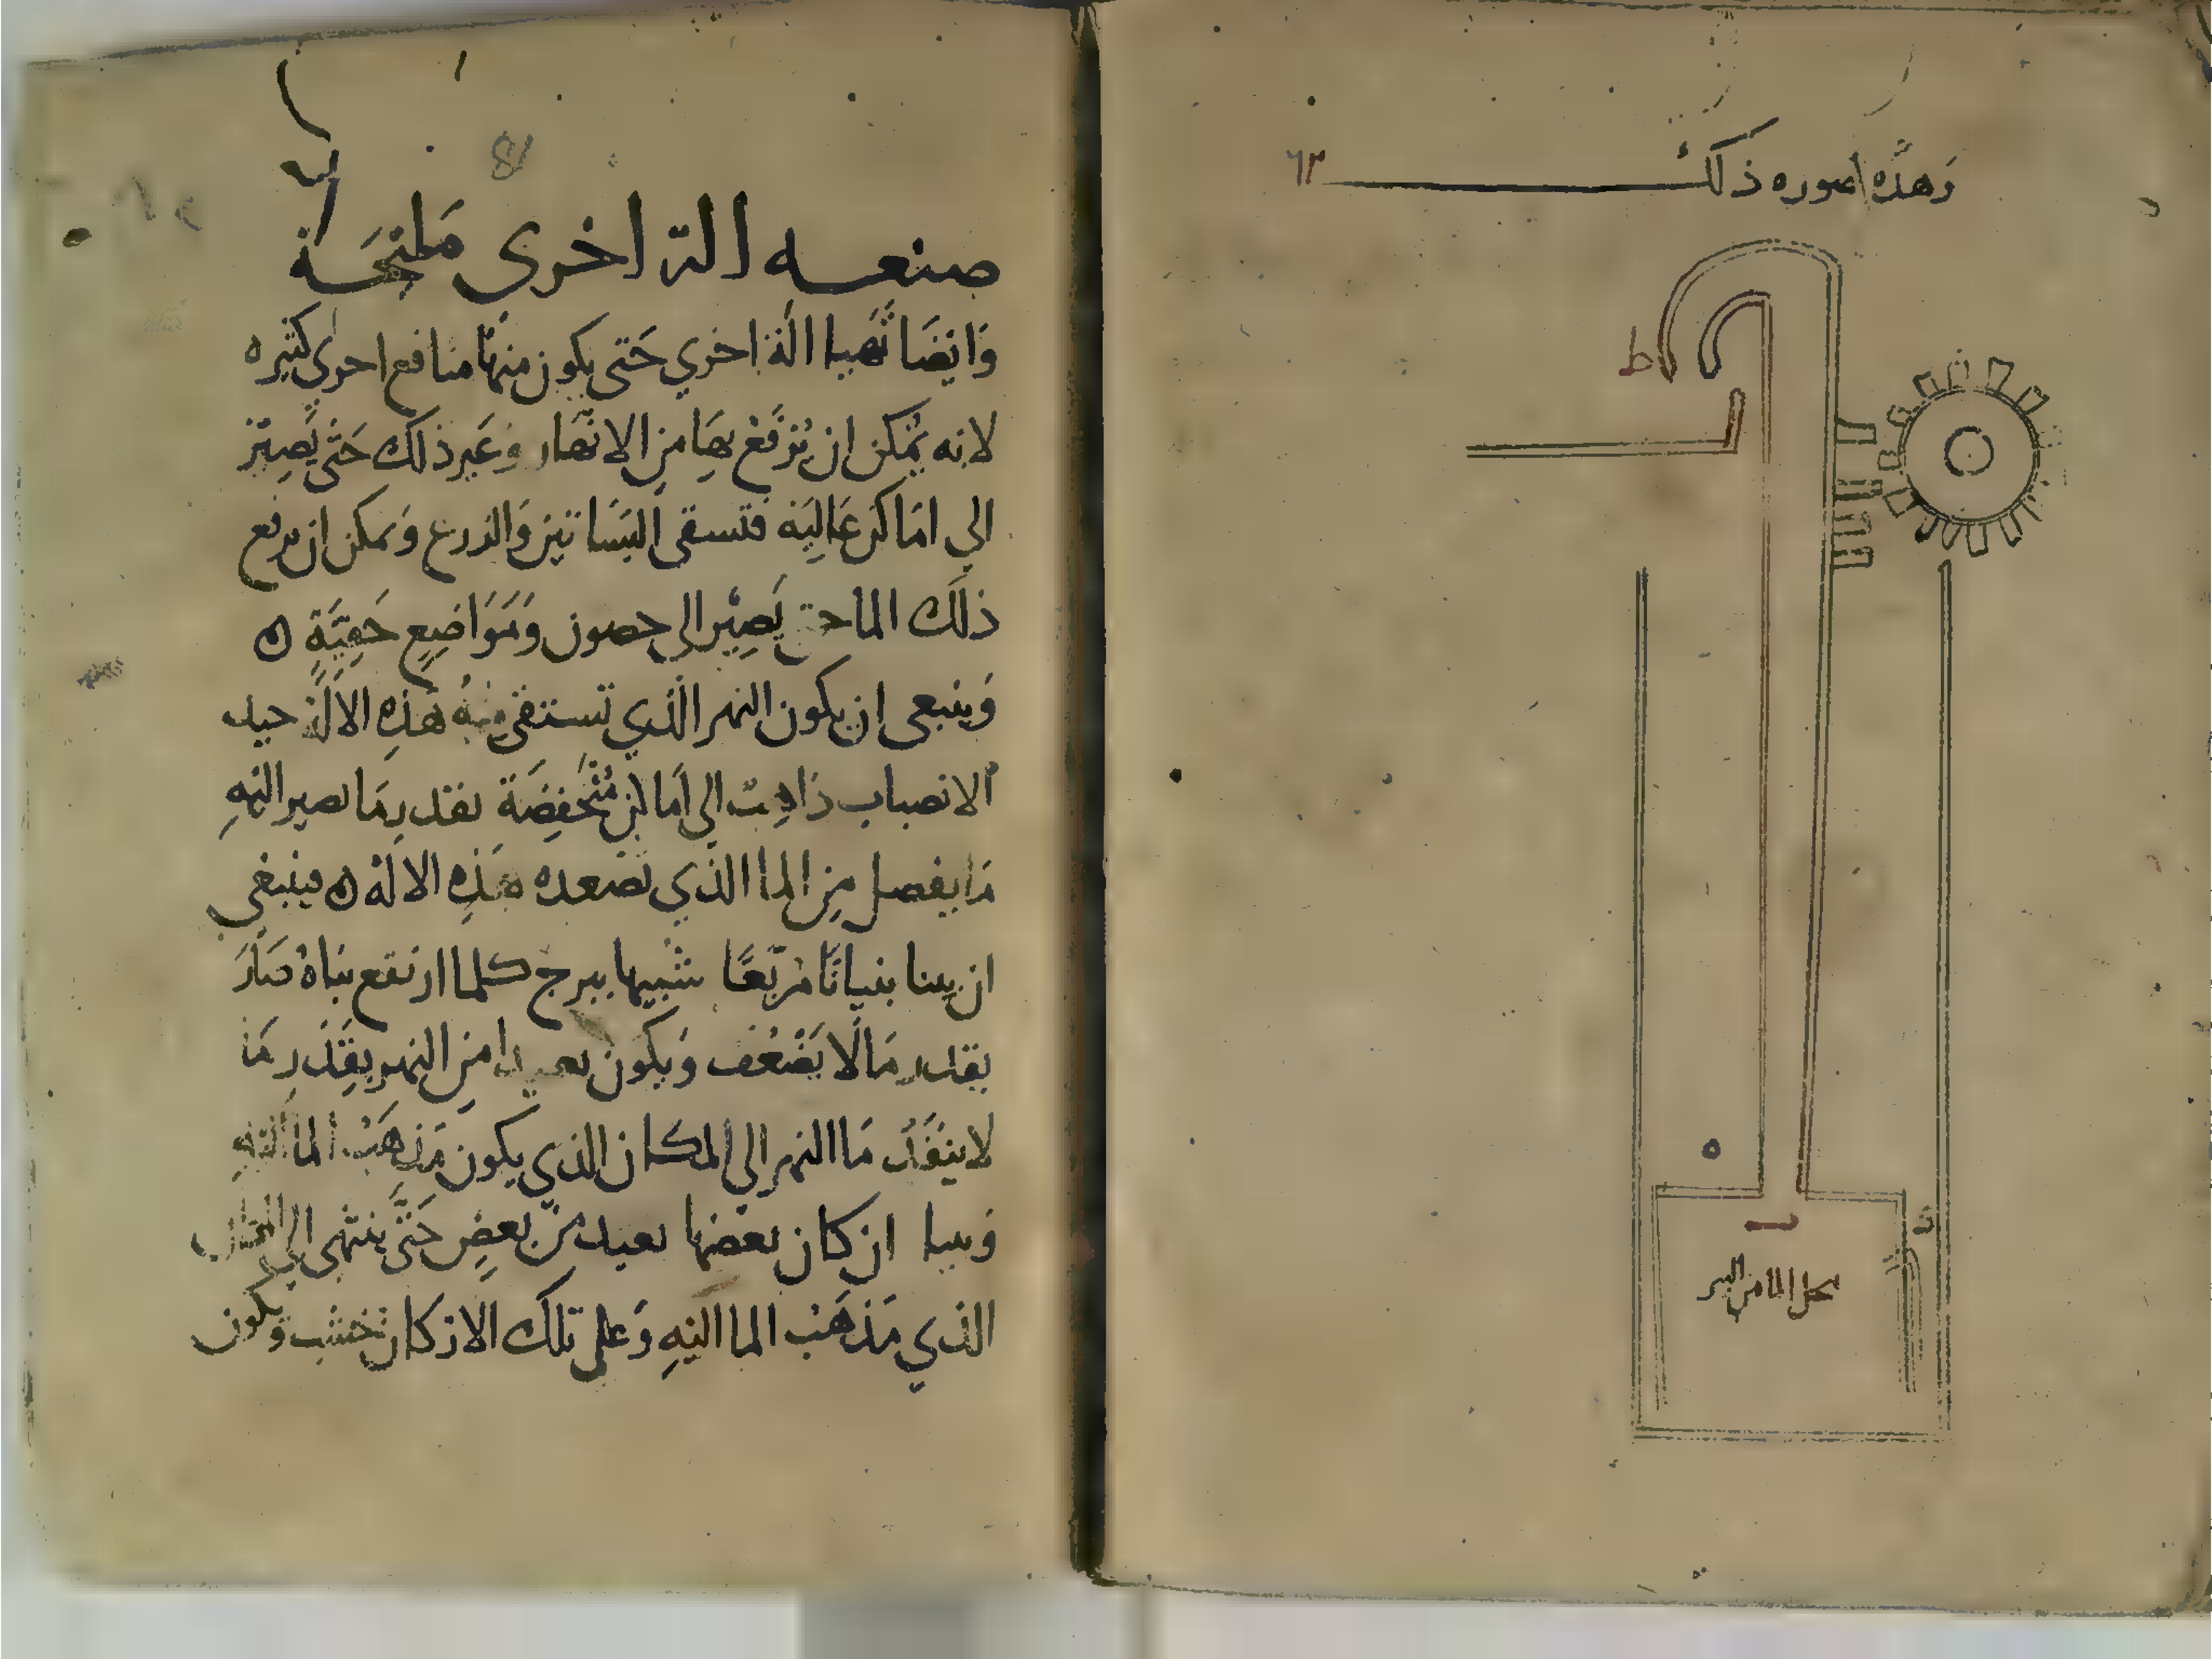 وهذه صوره ذلك ٦٢
ط
ه
محل الما من البير
81
صنعه الة اخرى
وايضا تهيا الة اخري حتى يكون منها منافع اخري كثيره
لانه يمكن ان يرفع بها من الانهار وغير ذلك حتى يصير
الي اماكن عاليه فتسقى البساتين والزرع ويمكن ان يرفع
ذلك الما حتى يصير الى حصون ومواضع خفية ه
وينبغى ان يكون النهر الذي تستقي منه هذه الالة جيد
الانصباب ذاهبت الي اماكن منخفضة بقدر ما يصير اليه
ما يفضل من الما الذي تصعده هذه الاله ه فينبغي
ان يبنا بنيانا مربعا شبيها ببرج كلما ارتفع بناه صار
بقدر ما لا يضعف ويكون بعيدا من النهر بقدر ما
لا ينفذ ما النهر الي المكان الذي يكون مذهب الما اليه
ان كان بعضها بعيد من بعض حتى ينتهى الى
الذي مذهب الما اليه وعلى تلك الاركان خشب ويكون